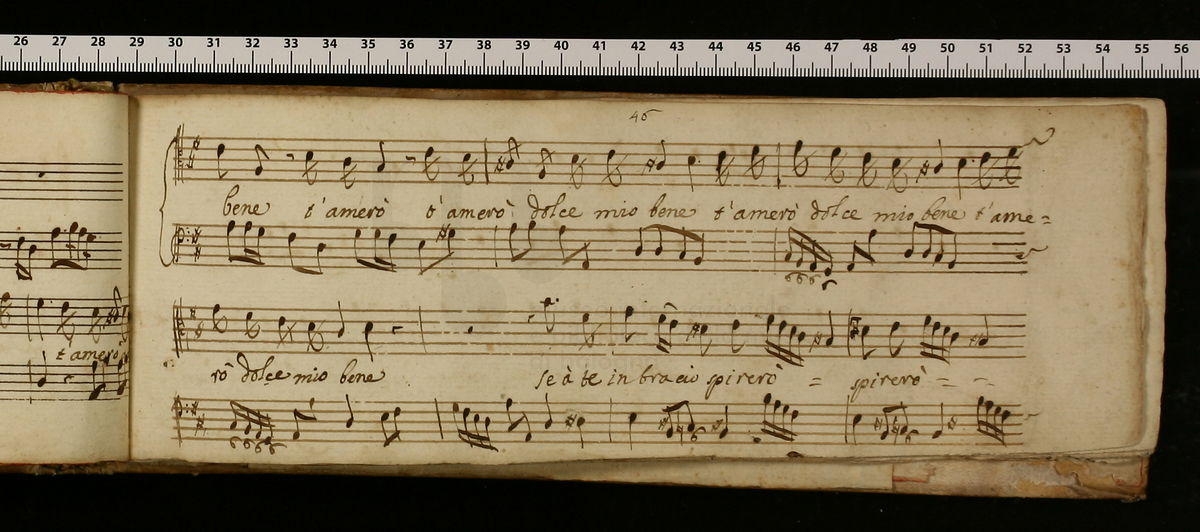 26 27 28 29 30 31 32 33 34 35 36 37 38 39 40 41 42 43 44 45 46 47 48 49 50 51 52 53 54 55 56
46
bene t'amerò t'amerò dolce mio bene t'amerò dolce mio bene t'ame=
6 6 6 6
t amerò
rò dolce mio bene se à te in bracio spirerò = spirerò = =
6 6 6 6